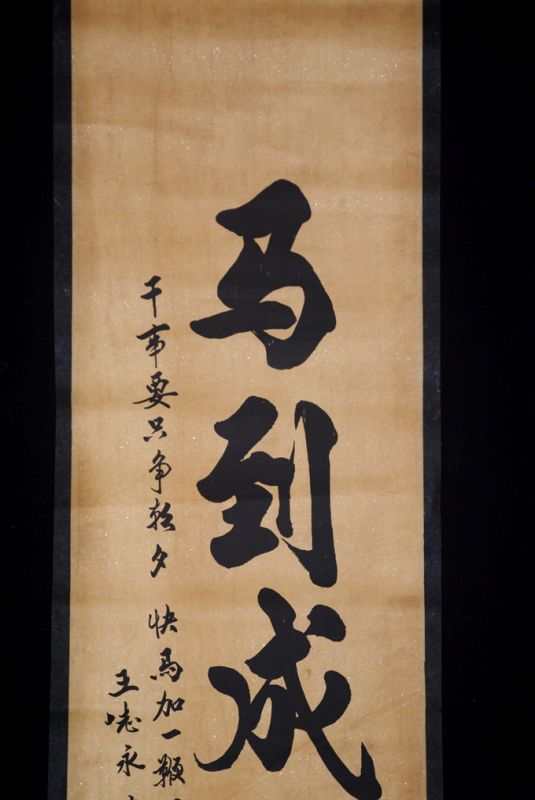 马到成
干事要只争朝夕 快马加一鞭
王 永